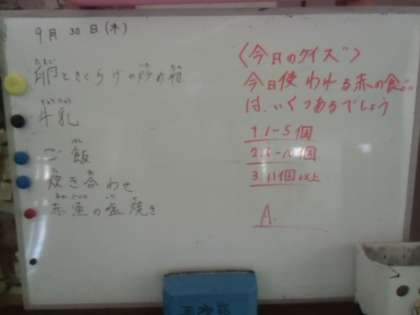 9月30日(木)
卵ときくらげの炒め物
牛乳
ご飯
炊き合わせ
赤魚の塩焼き
〈今日のクイズ〉
今日使われる赤の食品
は、いくつあるでしょう
1. 1~5個
2. 6~10個
3. 11個以上
A.